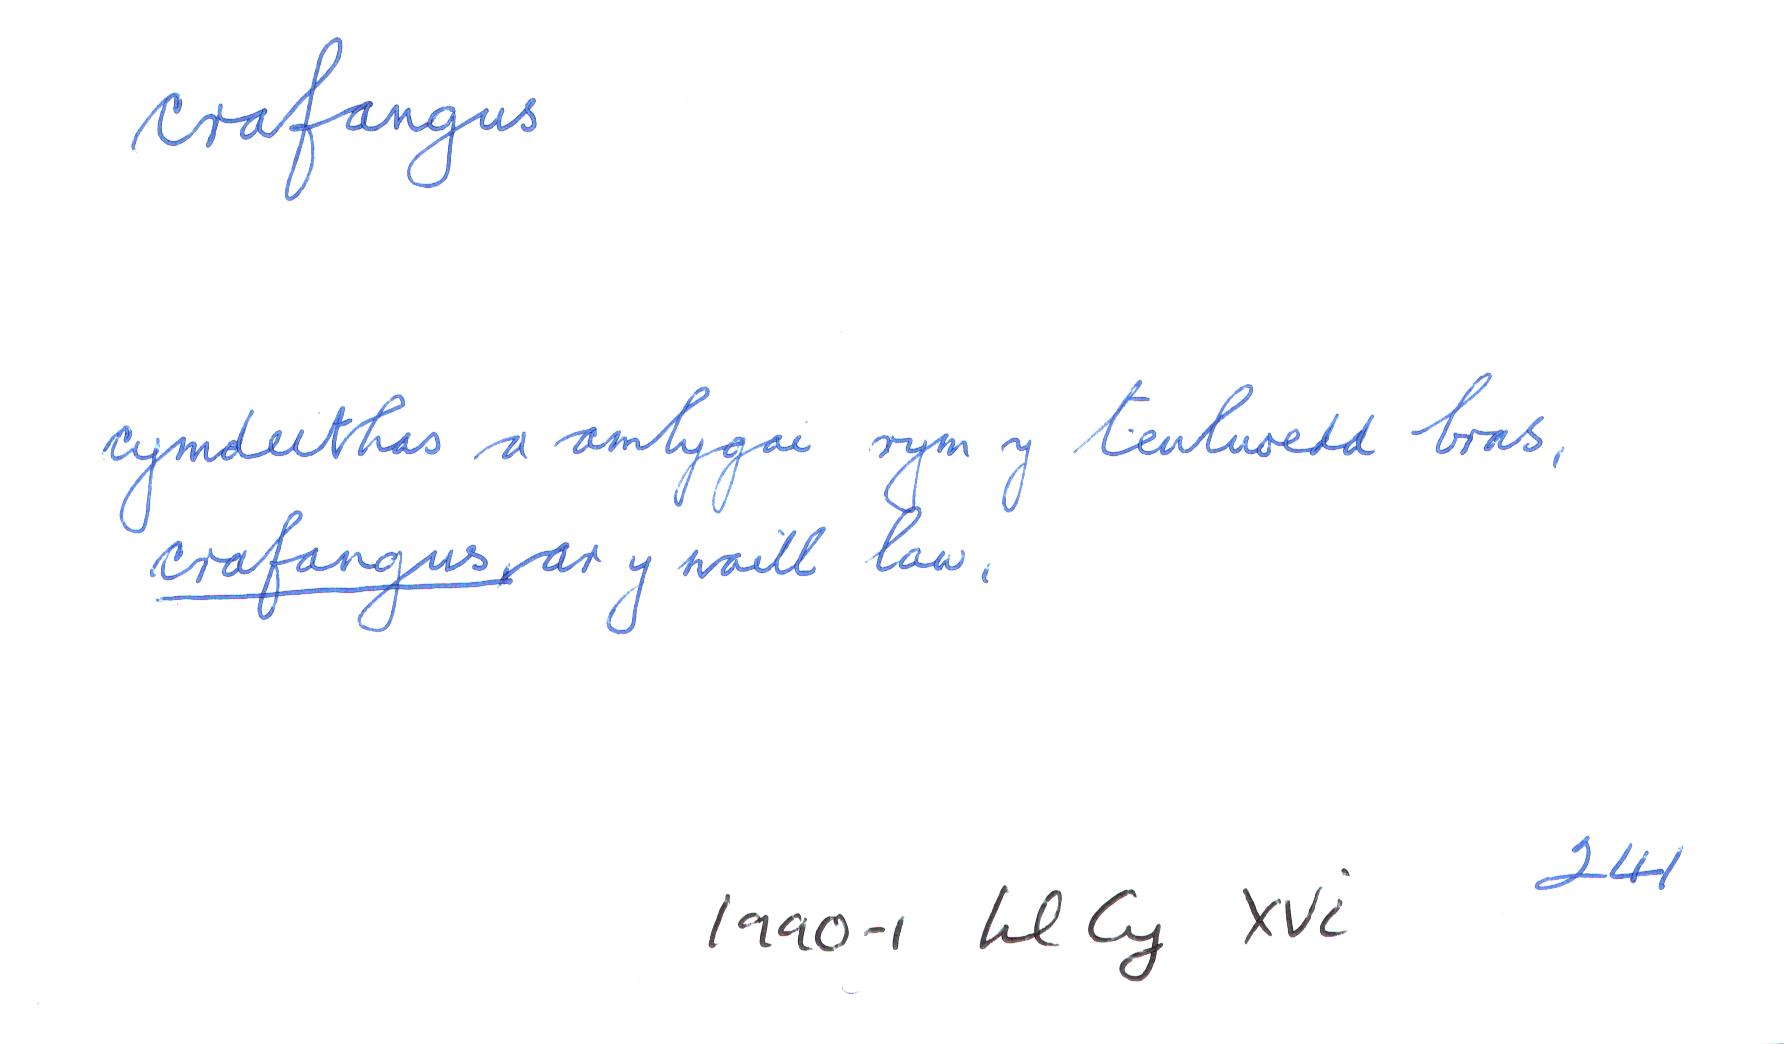 crafangus
cymdeithas a amlygai rym y teuluoedd bras,
crafangus, ar y naill law,
241
1990-1 Ll Cy XVi